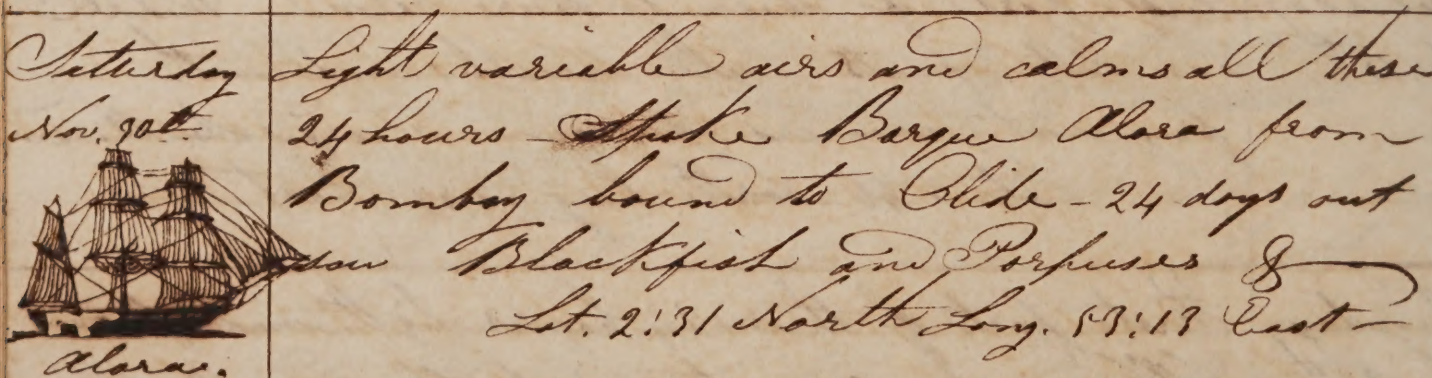 Satturday
Nov. 30th
Light variable airs and calms all these
24 hours - Spoke Barque Alora from
Bombay bound to Clide - 24 days out
saw Blackfish and Porpuses &
Lat. 2:31 North Long. 53:13 East -
Alora.